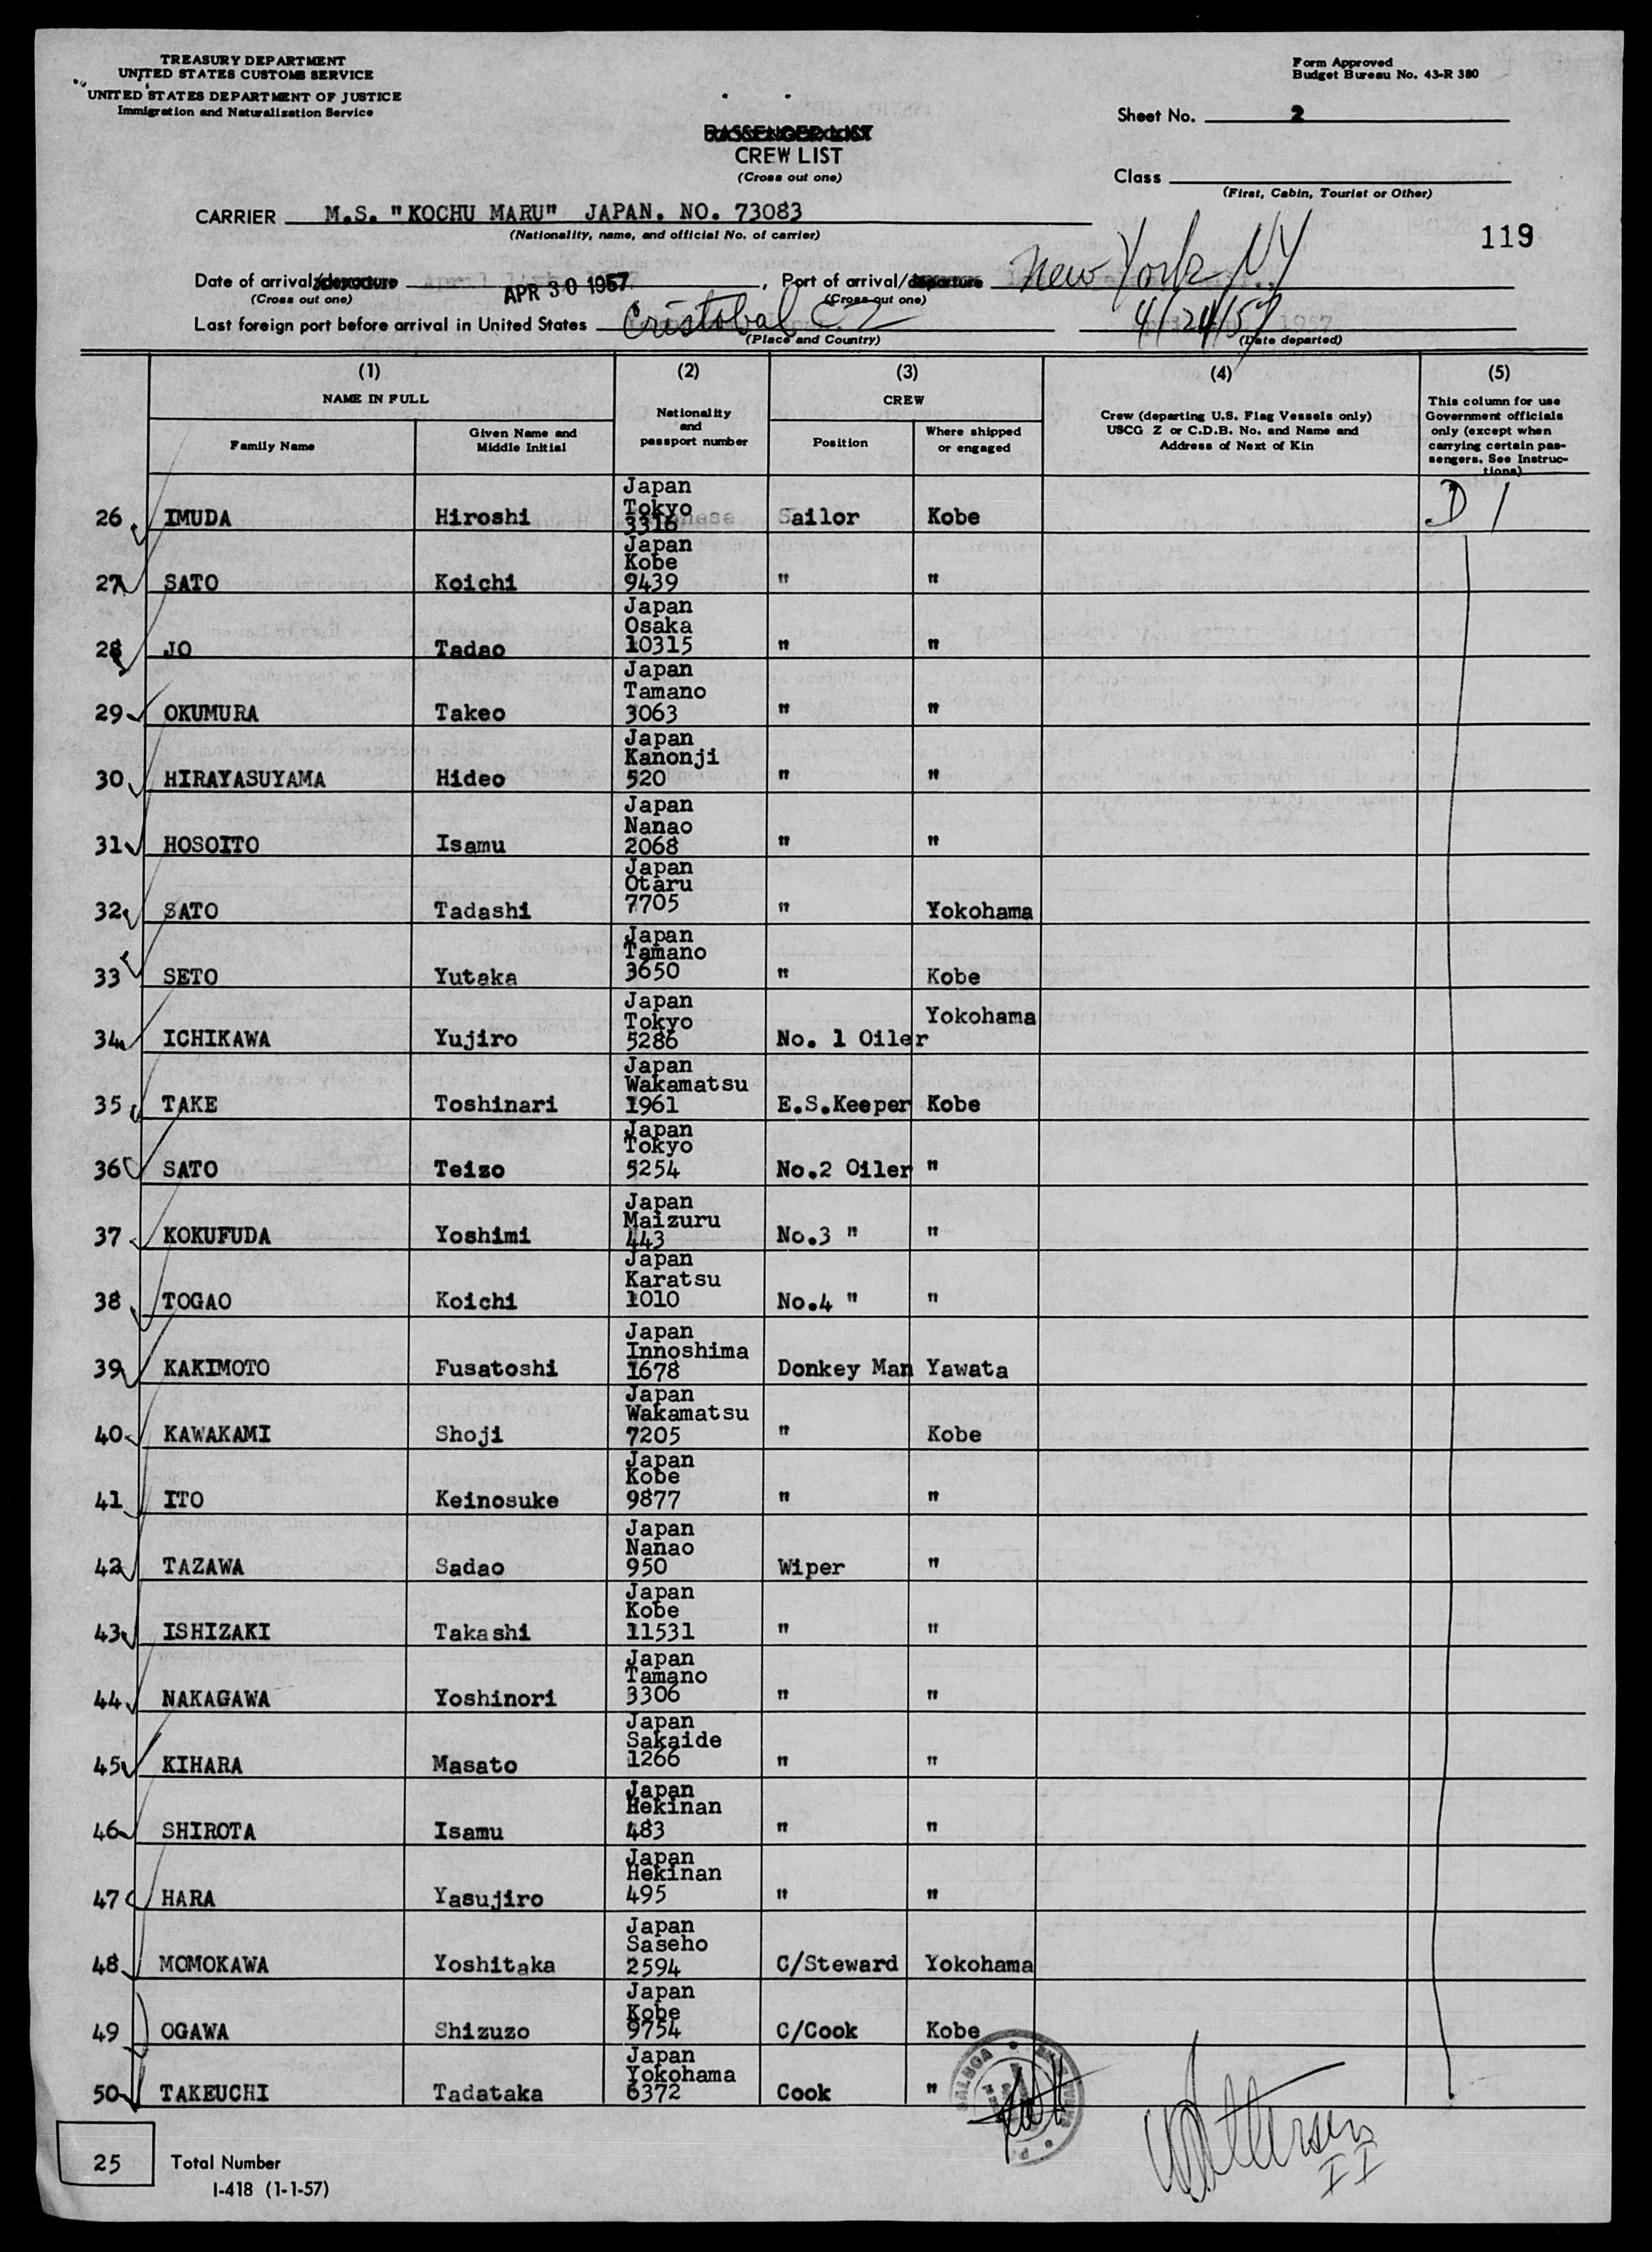 TREASURY DEPARTMENT
UNITED STATES CUSTOMS SERVICE
UNITED STATES DEPARTMENT OF JUSTICE
Immigration and Naturalization Service
Form Approved
Budget Bureau No. 43-R 380
Sheet No. 2
PASSENGER LIST
CREW LIST
(Cross out one)
Class
(First, Cabin, Tourist or Other)
CARRIER M.S. "KOCHU MARU" JAPAN. NO. 73083
(Nationality, name, and official No. of carrier)
119
Date of arrival/departure APR 30 1957, Port of arrival/departure New York NY
(Cross out one) (Cross out one)
Last foreign port before arrival in United States Cristobal CZ 4/24/57
(Place and Country) (Date departed)
(1) (2) (3) (4) (5)
NAME IN FULL
Family Name
Given Name and Middle Initial
Nationality and passport number
CREW
Position
Where shipped or engaged
Crew (departing U.S. Flag Vessels only)
USCG Z or C.D.B. No. and Name and
Address of Next of Kin
This column for use
Government officials
only (except when
carrying certain pas-
sengers. See Instruc-
tions)
26 IMUDA Hiroshi Japan Tokyo 3316 Sailor Kobe D 1
27 SATO Koichi Japan Kobe 9439 " "
28 JO Tadao Japan Osaka 10315 " "
29 OKUMURA Takeo Japan Tamano 3063 " "
30 HIRAYASUYAMA Hideo Japan Kanonji 520 " "
31 HOSOITO Isamu Japan Nanao 2068 " "
32 SATO Tadashi Japan Otaru 7705 " Yokohama
33 SETO Yutaka Japan Tamano 3650 " Kobe
34 ICHIKAWA Yujiro Japan Tokyo 5286 No. 1 Oiler Yokohama
35 TAKE Toshinari Japan Wakamatsu 1961 E.S.Keeper Kobe
36 SATO Teizo Japan Tokyo 5254 No.2 Oiler "
37 KOKUFUDA Yoshimi Japan Maizuru 443 No.3 " "
38 TOGAO Koichi Japan Karatsu 1010 No.4 " "
39 KAKIMOTO Fusatoshi Japan Innoshima 1678 Donkey Man Yawata
40 KAWAKAMI Shoji Japan Wakamatsu 7205 " Kobe
41 ITO Keinosuke Japan Kobe 9877 " "
42 TAZAWA Sadao Japan Nanao 950 Wiper "
43 ISHIZAKI Takashi Japan Kobe 11531 " "
44 NAKAGAWA Yoshinori Japan Tamano 3306 " "
45 KIHARA Masato Japan Sakaide 1266 " "
46 SHIROTA Isamu Japan Hekinan 483 " "
47 HARA Yasujiro Japan Hekinan 495 " "
48 MOMOKAWA Yoshitaka Japan Saseho 2594 C/Steward Yokohama
49 OGAWA Shizuzo Japan Kobe 9754 C/Cook Kobe
50 TAKEUCHI Tadataka Japan Yokohama 6372 Cook "
25 Total Number
I-418 (1-1-57)